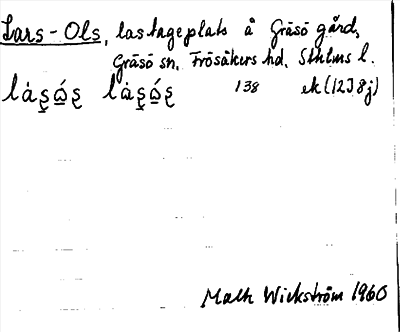 Lars-Ols, lastageplats å Gräsö gård,
Gräsö sn. Frösåkers hd. Sthlms l.
138 ek (12J 8j)
Wickström 1960